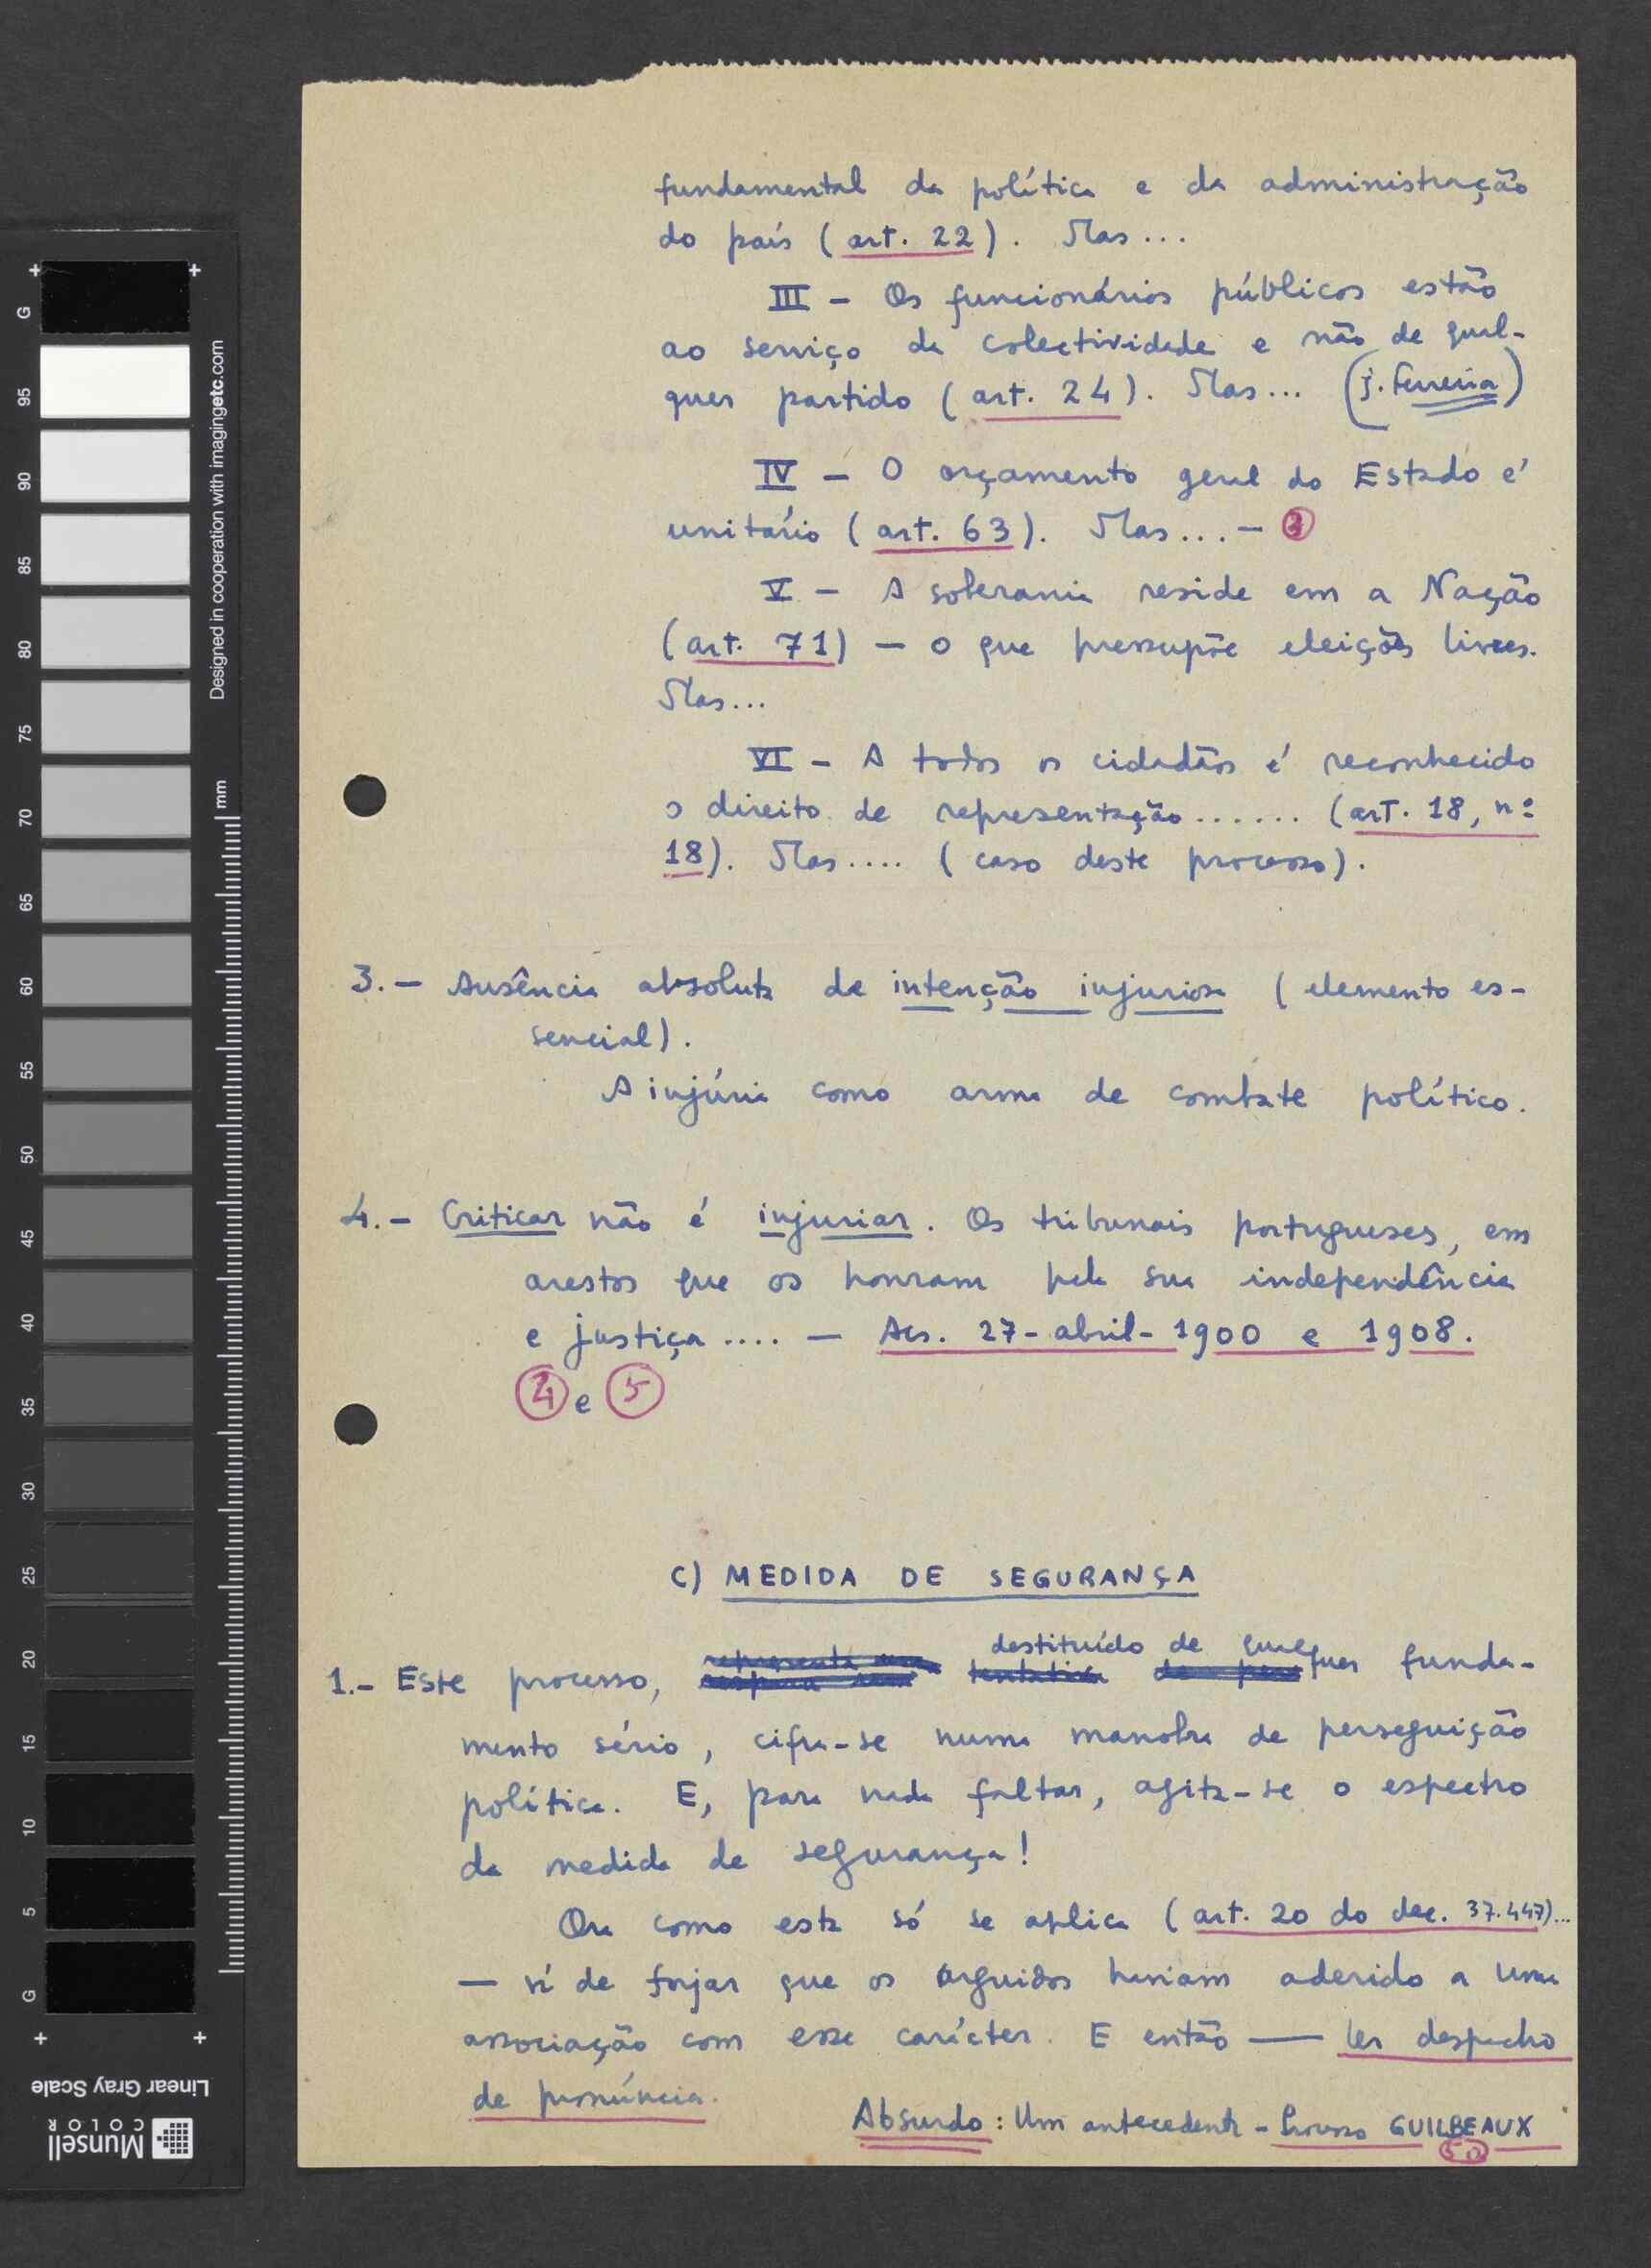 fundamental da política e da administração
do país (art. 22). Mas...
III - Os funcionários públicos estão
ao serviço da colectividade e não de qual-
quer partido (art. 24). Mas... (J. Ferreira)
IV - O orçamento geral do Estado é
unitário (art. 63). Mas... -
V - A soberania reside em a Nação
(art. 71) - o que pressupõe eleições livres.
Mas...
VI - A todos os cidadãos é reconhecido
o direito de representação...... (art. 18, nº
18). Mas.... (caso deste processo).
3. - Ausência absoluta de intenção injuriosa (elemento es-
sencial).
A injúria como arma de combate político.
4. - Criticar não é injuriar. Os tribunais portugueses, em
arestos que os honram pela sua independência
e justiça .... - Acs. 27-abril-1900 e 1908.
4 e 5
C) MEDIDA DE SEGURANÇA
1.- Este processo, destituído de qualquer funda-
mento sério, cifra-se numa manobra de perseguição
política. E, para nada faltar, agita-se o espectro
da medida de segurança!
Ora como esta só se aplica (art. 20 do dec. 37.447)...
- há de forjar que os arguidos haviam aderido a uma
associação com esse carácter. E então — ler despacho
de pronúncia.
Absurdo: Um antecedente - Processo GUILBEAUX
5a
Designed in cooperation with imagingetc.com
mm
G
95
90
85
80
75
70
65
60
55
50
45
40
35
30
25
20
15
10
5
G
Linear Gray Scale
Munsell
COLOR